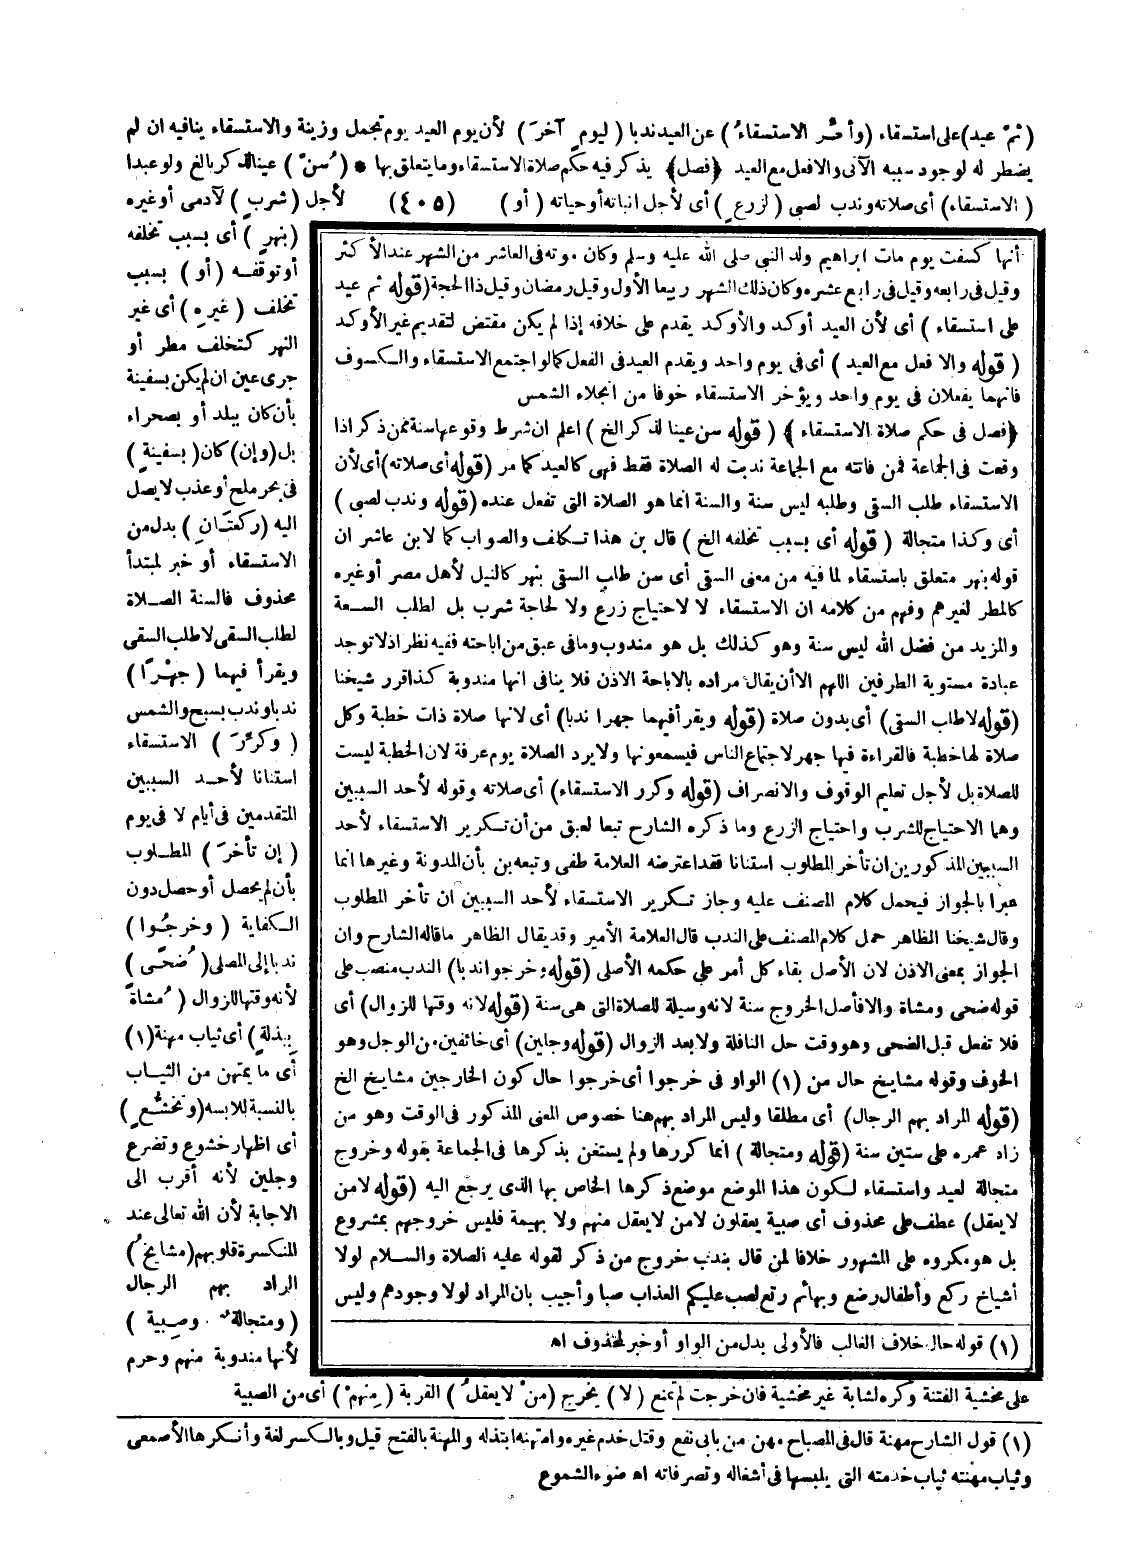 (ثم عيد) على استسقاء (وأخر الاستسقاء) عن العيد ندبا (ليوم آخر) لأن يوم العيد يوم تجمل وزينة والاستسقاء ينافيه ان لم
يضطر له لوجود سببه الآتى والا فعل مع العيد ﴿فصل﴾ يذكر فيه حكم صلاة الاستسقاء وما يتعلق بها * (سن) عينا لذكر بالغ ولو عبدا
(الاستسقاء) أى صلاته وندب لصبى (لزرع) أى لأجل انباته أو حياته (أو) (٤٠٥) لأجل (شرب) لآدمى أو غيره
(بنهر) أى بسبب تخلفه
أو توقفه (أو) بسبب
تخلف (غيره) أى غير
النهر كتخلف مطر أو
جرى عين ان لم يكن بسفينة
بأن كان ببلد أو بصحراء
بل (وإن) كان (بسفينة)
فى بحر ملح أو عذب لا يصل
اليه (ركعتان) بدل من
الاستسقاء أو خبر لمبتدأ
محذوف فالسنة الصلاة
لطلب السقى لا طلب السقى
ويقرأ فيهما (جهرا)
ندبا وندب بسبح والشمس
(وكرر) الاستسقاء
استنانا لأحد السببين
المتقدمين فى أيام لا فى يوم
(إن تأخر) المطلوب
بأن لم يحصل أو حصل دون
الكفاية (وخرجوا)
ندبا إلى المصلى (ضحى)
لأنه وقتها للزوال (مشاة
ببذلة) أى ثياب مهنة (١)
أى ما يمتهن من الثياب
بالنسبة للابسه (وتخشع)
أى اظهار خشوع وتضرع
وجلين لأنه أقرب الى
الاجابة لأن الله تعالى عند
المنكسرة قلوبهم (مشايخ)
المراد بهم الرجال
(ومتجالة وصبية)
لأنها مندوبة منهم وحرم
على مخشية الفتنة وكره لشابة غير مخشية فان خرجت لم تمنع (لا) يخرج (من لا يعقل) القربة (منهم) أى من الصبية
أنها كسفت يوم مات ابراهيم ولد النبى صلى الله عليه وسلم وكان موته فى العاشر من الشهر عند الأكثر
وقيل فى رابعه وقيل فى رابع عشره وكان ذلك الشهر ربيعا الأول وقيل رمضان وقيل ذا الحجة (قوله ثم عيد
على استسقاء) أى لأن العيد أوكد والأوكد يقدم على خلافه إذا لم يكن مقتض لتقديم غير الأوكد
(قوله والا فعل مع العيد) أى فى يوم واحد ويقدم العيد فى الفعل كما لو اجتمع الاستسقاء والكسوف
فانهما يفعلان فى يوم واحد ويؤخر الاستسقاء خوفا من انجلاء الشمس
﴿فصل فى حكم صلاة الاستسقاء﴾ (قوله سن عينا لذكر الخ) اعلم ان شرط وقوعها سنة ممن ذكر اذا
وقعت فى الجماعة فمن فاتته مع الجماعة ندبت له الصلاة فقط فهى كالعيد كما مر (قوله أى صلاته) أى لأن
الاستسقاء طلب السقى وطلبه ليس سنة والسنة انما هو الصلاة التى تفعل عنده (قوله وندب لصبى)
أى وكذا متجالة (قوله أى بسبب تخلفه الخ) قال بن هذا تكلف والصواب كما لابن عاشر ان
قوله بنهر متعلق باستسقاء لما فيه من معنى السقى أى سن طلب السقى بنهر كالنيل لأهل مصر أو غيره
كالمطر لغيرهم وفهم من كلامه ان الاستسقاء لا لاحتياج زرع ولا لحاجة شرب بل لطلب السعة
والمزيد من فضل الله ليس سنة وهو كذلك بل هو مندوب وما فى عبق من اباحته ففيه نظر اذ لا توجد
عبادة مستوية الطرفين اللهم الا أن يقال مراده بالاباحة الاذن فلا ينافى انها مندوبة كذا قرر شيخنا
(قوله لا طلب السقى) أى بدون صلاة (قوله ويقرأ فيهما جهرا ندبا) أى لانها صلاة ذات خطبة وكل
صلاة لها خطبة فالقراءة فيها جهر لاجتماع الناس فيسمعونها ولا يرد الصلاة يوم عرفة لان الخطبة ليست
للصلاة بل لأجل تعليم الوقوف والانصراف (قوله وكرر الاستسقاء) أى صلاته وقوله لأحد السببين
وهما الاحتياج للشرب واحتياج الزرع وما ذكره الشارح تبعا لعبق من أن تكرير الاستسقاء لأحد
السببين المذكورين ان تأخر المطلوب استنانا فقد اعترضه العلامة طفى وتبعه بن بأن المدونة وغيرها انما
عبرا بالجواز فيحمل كلام المصنف عليه وجاز تكرير الاستسقاء لأحد السببين ان تأخر المطلوب
وقال شيخنا الظاهر حمل كلام المصنف على الندب قال العلامة الأمير وقد يقال الظاهر ما قاله الشارح وان
الجواز بمعنى الاذن لان الأصل بقاء كل أمر على حكمه الأصلى (قوله وخرجوا ندبا) الندب منصب على
قوله ضحى ومشاة والا فأصل الخروج سنة لانه وسيلة للصلاة التى هى سنة (قوله لانه وقتها للزوال) أى
فلا تفعل قبل الضحى وهو وقت حل النافلة ولا بعد الزوال (قوله وجلين) أى خائفين من الوجل وهو
الخوف وقوله مشايخ حال من (١) الواو فى خرجوا أى خرجوا حال كون الخارجين مشايخ الخ
(قوله المراد بهم الرجال) أى مطلقا وليس المراد بهم هنا خصوص المعنى المذكور فى الوقت وهو من
زاد عمره على ستين سنة (قوله ومتجالة) انما كررها ولم يستغن بذكرها فى الجماعة بقوله وخروج
متجالة لعيد واستسقاء لكون هذا الموضع موضع ذكرها الخاص بها الذى يرجع اليه (قوله لا من
لا يعقل) عطف على محذوف أى صبية يعقلون لا من لا يعقل منهم ولا بهيمة فليس خروجهم بمشروع
بل هو مكروه على المشهور خلافا لمن قال بندب خروج من ذكر لقوله عليه الصلاة والسلام لولا
أشياخ ركع وأطفال رضع وبهائم رتع لصب عليكم العذاب صبا وأجيب بان المراد لولا وجودهم وليس
(١) قوله حال خلاف الغالب فالأولى بدل من الواو أو خبر لمحذوف اه
(١) قول الشارح مهنة قال فى المصباح مهن من بابى نفع وقتل خدم غيره وامتهنه ابتذله والمهنة بالفتح قيل وبالكسر لغة وأنكرها الأصمعى
وثياب مهنته ثياب خدمته التى يلبسها فى أشغاله وتصرفاته اه ضوء الشموع